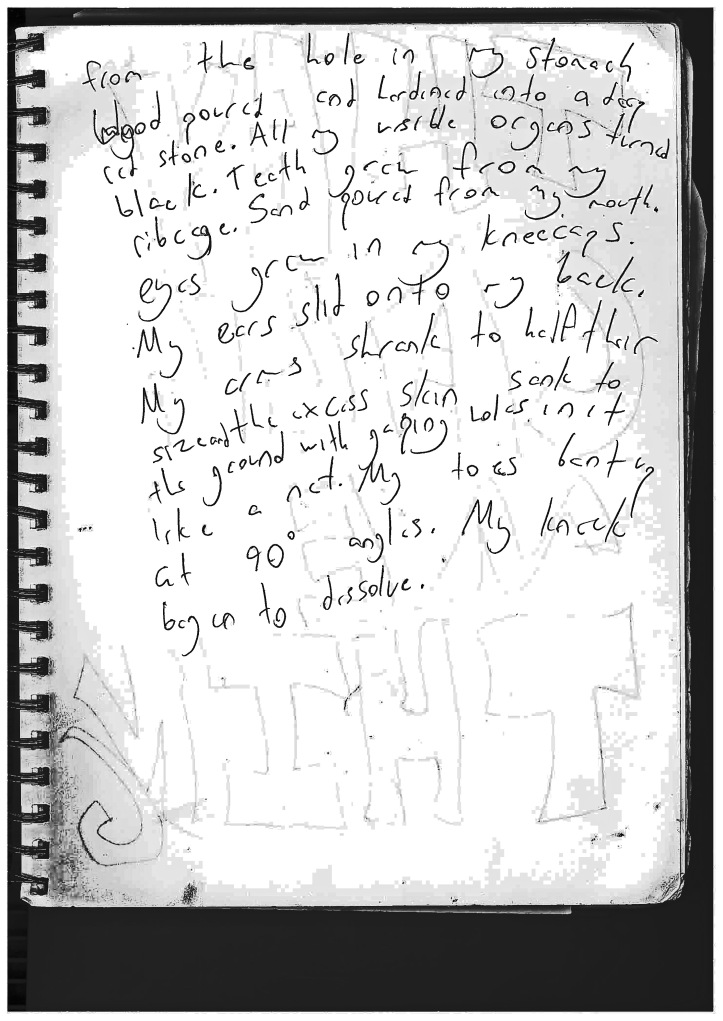 from the hole in my stomach
blood poured and hardened into a deep
red stone. All my visible organs turned
black. Teeth grew from my
ribcage. Sand poured from my mouth.
eyes grew in my kneecaps.
My ears slid onto my back.
My arms shrank to half their
size and the excess skin sank to
the ground with gaping holes in it
like a net. My toes bent up
at 90° angles. My knee
began to dissolve.